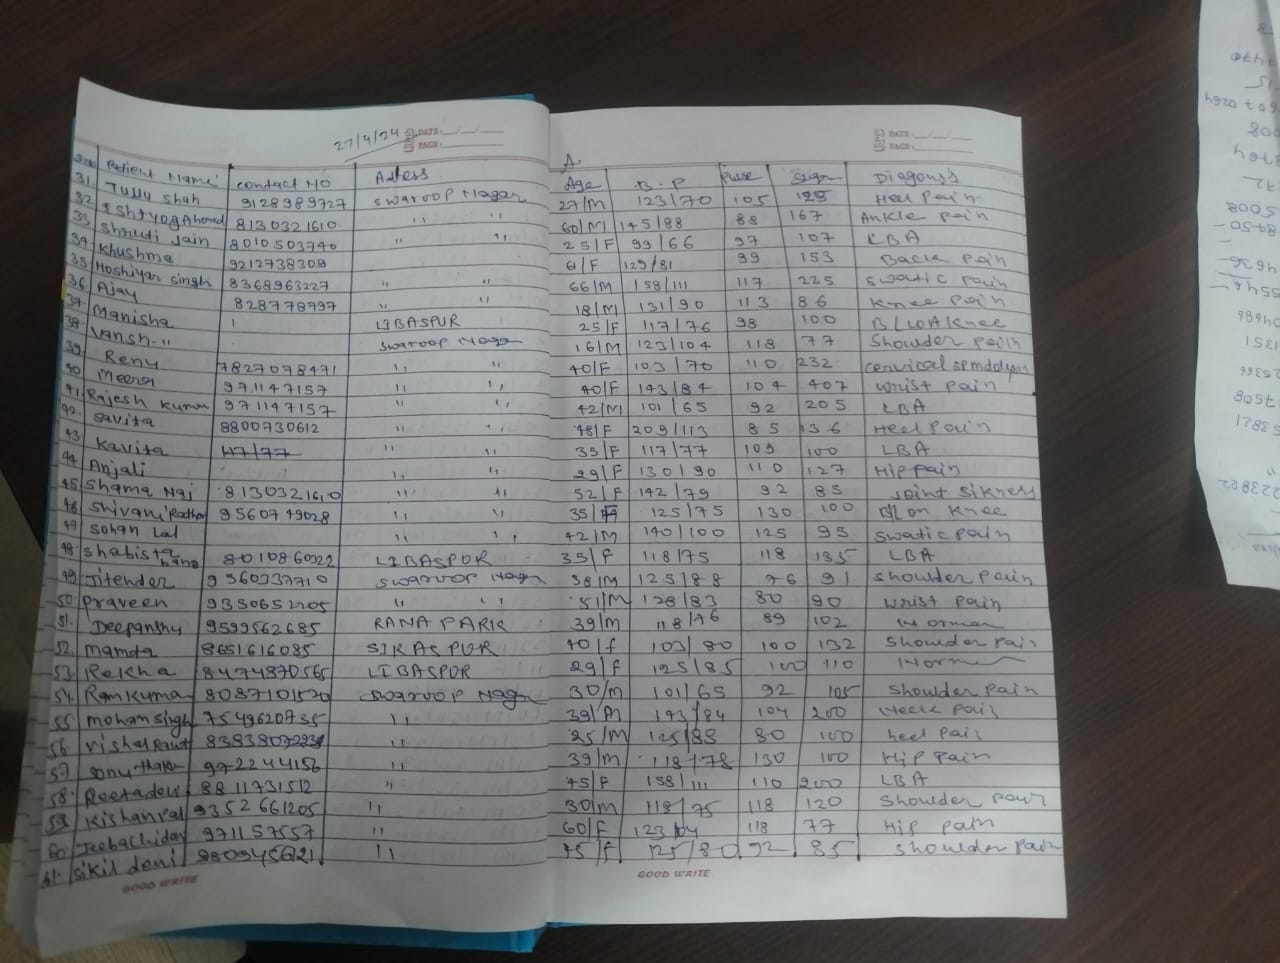 27/4/24 DATE: PAGE:
DATE: PAGE:
Patient Name contact NO Adess Age B.P Pulse Sugar Diagons's
31. Tullu Shah 9128989727 swaroop Nagar 27/M 123/70 105 Heel Pain
32. 8130321610 " " 60/M 145/88 88 167 Ankle pain
33. Shruti Jain 8010503740 " " 25/F 99/66 97 107 LBA
34. Khushma 9212738309 61/F 129/81 99 153 Back pain
35. Hoshiyar singh 8368963227 " " 66/M 158/111 117 225 swatic pain
36. Ajay 828778797 " " 18/M 131/90 113 86 Knee pain
37. Manisha LIBASPUR 25/F 117/76 98 100 B/LOA knee
38. Vansh-" swaroop Naga 16/M 123/104 118 77 Shoulder pain
39. Renu 7827078471 " " 40/F 103/70 110 232 cervical
40. Meena 971147157 " " 40/F 143/84 104 407 wrist pain
41. Rajesh Kumar 971147157 " " 42/M 101/65 92 205 LBA
42. Savita 8800730612 " " 48/F 209/113 85 136 Heel pain
43. Kavita 117/77 " " 35/F 117/77 109 100 LBA
44. Anjali " " 29/F 130/90 110 127 Hip pain
45. Shama 8130321610 " " 52/F 142/79 92 85 Joint sikness
46. Shivani 9560749028 " " 35/F 125/75 130 100 knee
47. Sohan Lal " " 42/M 140/100 125 95 swatic pain
48. Shabista bano LIBASPUR 35/F 118/75 118 135 LBA
49. Jitender swaroop Nagar 38/M 125/88 76 91 shoulder pain
50. Praveen " " 51/M 128/83 80 90 wrist pain
51. Deepanshu 9599562685 RANA PARK 39/M 118/76 89 102 Normal
52. mamta 8651616085 SIKASPUR 40/f 103/80 100 132 Shoulder pain
53. Rekha 8474870565 LIBASPUR 29/f 125/85 100 110 Normal
54. Ramkumar swaroop Nagar 30/M 101/65 92 105 shoulder pain
55 mohan singh 7549620735 " 39/M 143/84 104 200
56. vishal Rawt " 25/M 125/88 80 100 heel pain
57. sonu thakur 9722441156 " 39/M 118/78 130 100 Hip pain
58. 8811731512 " 45/F 158/111 110 200 LBA
59. Kishanpal 9352661205 " 30/M 118/75 118 120 Shoulder pain
60. 971157557 " 60/F 118 77 Hip pain
61. sikil devi " 45/f 125/80 92 85 shoulder pain
GOOD WRITE GOOD WRITE